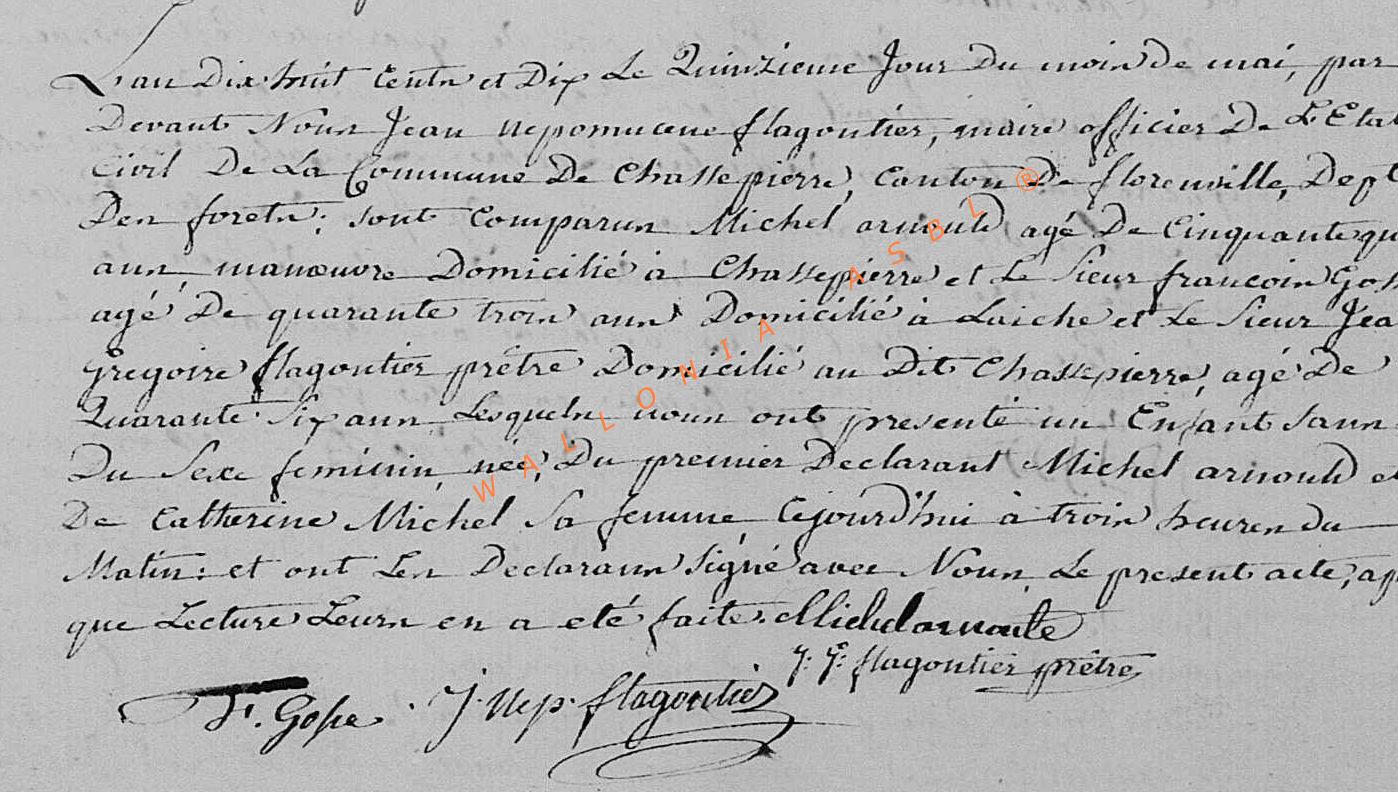 L'an Dix huit Cents et Dix Le Quinzieme Jour Du mois De mai, par
Devant Nous Jean nepomucene flagontier, maire officier De L'Etat
Civil De La Commune De Chassepierre, Canton De florenville, Dept
Des forets; sont Comparus Michel arnould agé De Cinquante qu
ans manœuvre Domicilié à Chassepierre et Le Sieur francois Goss
agé De quarante trois ans Domicilié à Laiche et Le Sieur Jea
Gregoire flagontier prêtre Domicilié au Dit Chassepierre, agé De
Quarante Six ans Lesquels nous ont presenté un Enfant sans
Du Sexe feminin, née, Du premier Declarant Michel arnould et
De Catherine Michel Sa femme Cejourd'hui à trois heures du
Matin: et ont Les Declarans Signé avec Nous Le present acte, ap
que Lecture Leurs en a eté faite. Michel arnoulde
J: G: flagontier prêtre
F. Gosse J. Nep. flagontier
WALLONIA ASBL ®